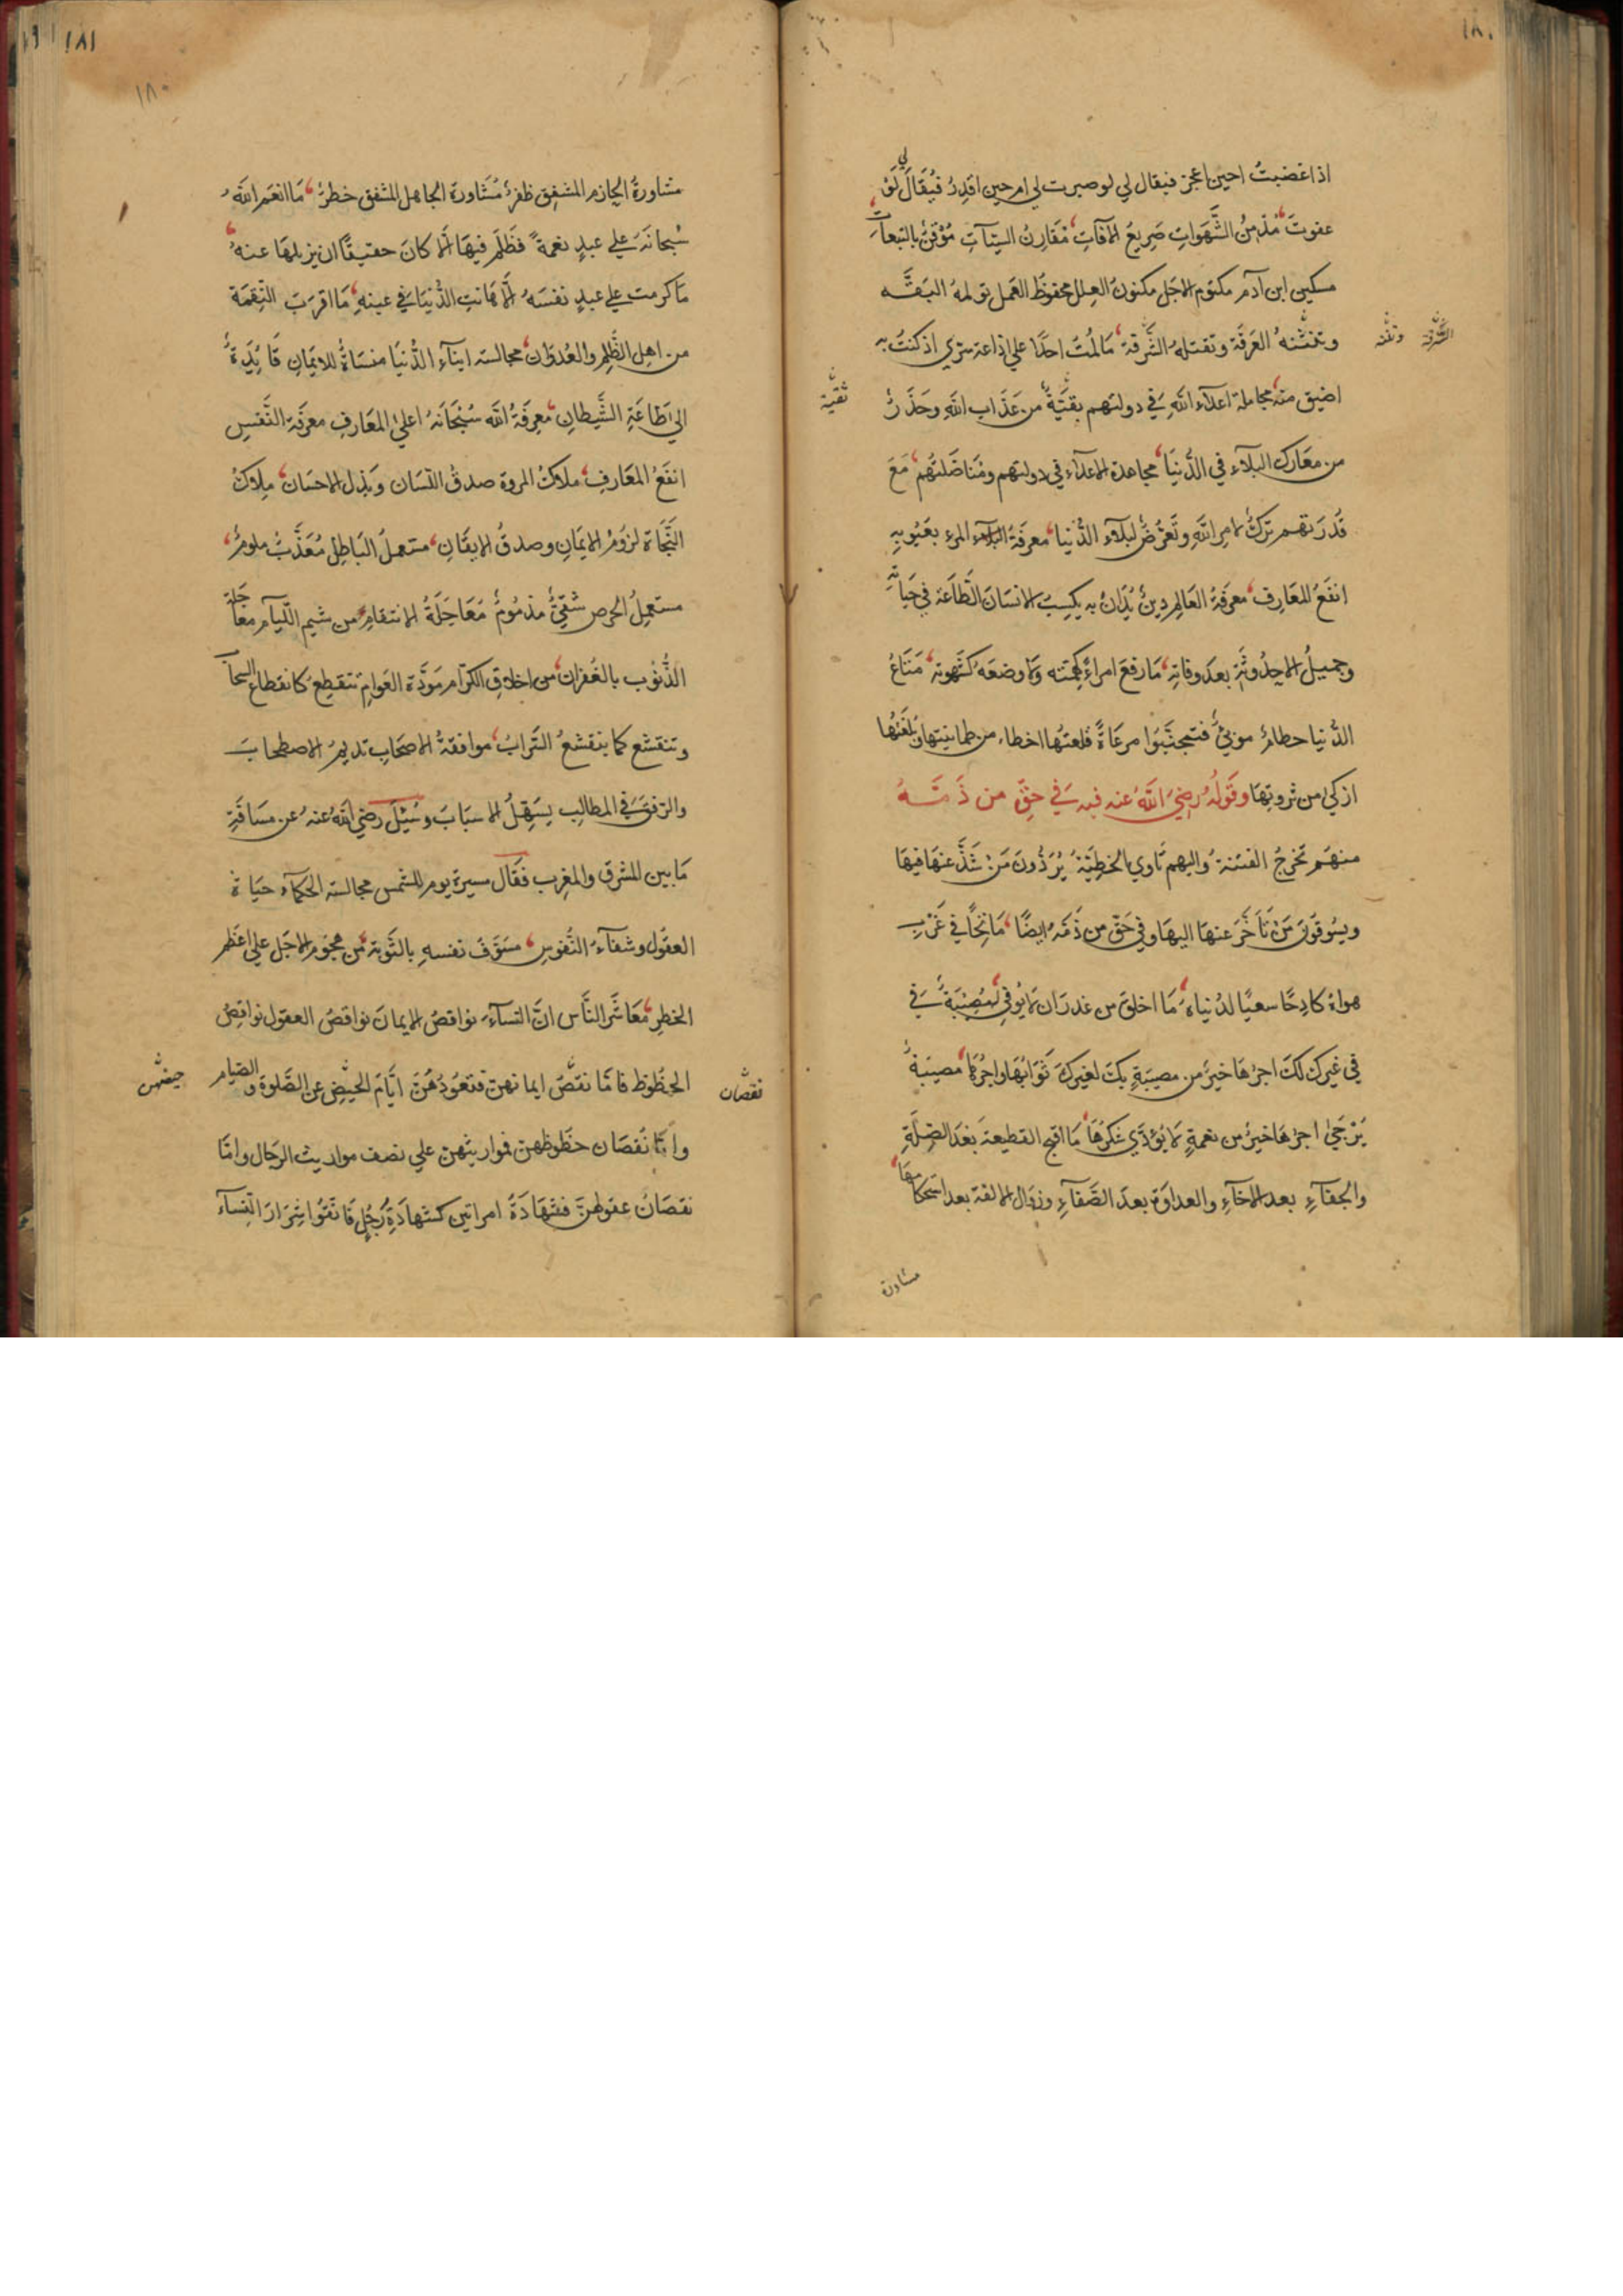 ١٨٠
اذا غضبت احين اعجز فيقال لي لو صبرت لي ام حين اقدر فيقال لي لو
عفوت مدمن الشهوات صريع الآفات مقارن السيئات موقن بالتبعات
مسكين ابن آدم مكتوم الاجل مكنون العلل محفوظ العمل تولمه البقه
وتنتنه العرقة وتقتله الشرقة ما لمت احدا علي اذاعة سري اذ كنت به
الشرقة
اضيق منه مجاملة اعداء الله في دولتهم بقية من عذاب الله وحذر
تقية
من معارك البلاء في الدنيا مجاهدة الاعداء في دولتهم ومناضلتهم مع
قدرتهم ترك لامر الله وتعرض لبلاء الدنيا معرفة المرء بعيوبه
انفع المعارف معرفة العالم دين يدان به يكسب الانسان الطاعة في حياته
وجميل الاحدوثة بعد وفاته ما رفع امراء كهمته ولا وضعه كشهوته متاع
الدنيا حطام موبئ فتجنبوا مرعاة قلعتها احظاء من طمانينتها وبلغتها
ازكي من ثروتها وقوله رضي الله عنه فيه في حق من ذمه
منهم تخرج الفتنة واليهم تاوي الخطيئة يردون من شذ عنها فيها
ويسوقون من تاخر عنها اليها وفي حق من ذمه ايضا ماتحا في غرب
هواه كادحا سعيا لدنياه ما اخلق من غدر ان لا يوفي له مصيبة في
في غيرك لك اجرها خير من مصيبة بك لغيرك ثوابها واجرها مصيبة
يرجي اجرها خير من نعمة لا يؤدي شكرها ما اقبح القطيعة بعد الصلة
والجفآء بعد الاخآء والعداوة بعد الصفآء وزوال الالفة بعد استحكامها
مشاورة
١٨١
١٨٠
مشاورة الحازم المشفق ظفر مشاورة الجاهل المشفق خطر ما انعم الله
سبحانه علي عبد نعمة فظلم فيها الا كان حقيقا ان يزيلها عنه
ما كرمت علي عبد نفسه الا هانت الدنيا في عينه ما اقرب النقمة
من اهل الظلم والعدوان مجالسة ابناء الدنيا منساة للايمان قايدة
الي طاعة الشيطان معرفة الله سبحانه اعلي المعارف معرفة النفس
انفع المعارف ملاك المروة صدق اللسان وبذل الاحسان ملاك
النجاة لزوم الايمان وصدق الايقان مستعمل الباطل معذب ملوم
مستعمل الحرص شقي مذموم معاجلة الانتقام من شيم اللئام معاجلة
الذنوب بالغفران من اخلاق الكرام مودة العوام تنقطع كانقطاع السحاب
وتنقشع كما ينقشع السراب موافقة الاصحاب تديم الاصطحاب
والرفق في المطالب يسهل الاسباب وسئل رضي الله عنه عن مسافة
ما بين المشرق والمغرب فقال مسيرة يوم للشمس مجالسة الحكمآء حياة
العقول وشفآء النفوس مسوف نفسه بالتوبة من هجوم الاجل علي اعظم
الخطر معاشر الناس ان النسآء نواقص الايمان نواقص العقول نواقص
الحظوظ فاما نقص ايمانهن فقعودهن ايام الحيض عن الصلوة والصيام
نقصان
حيضهن
واما نقصان حظوظهن فمواريثهن علي نصف مواريث الرجال واما
نقصان عقولهن فشهادة امراتين كشهادة رجل فاتقوا شرار النسآء